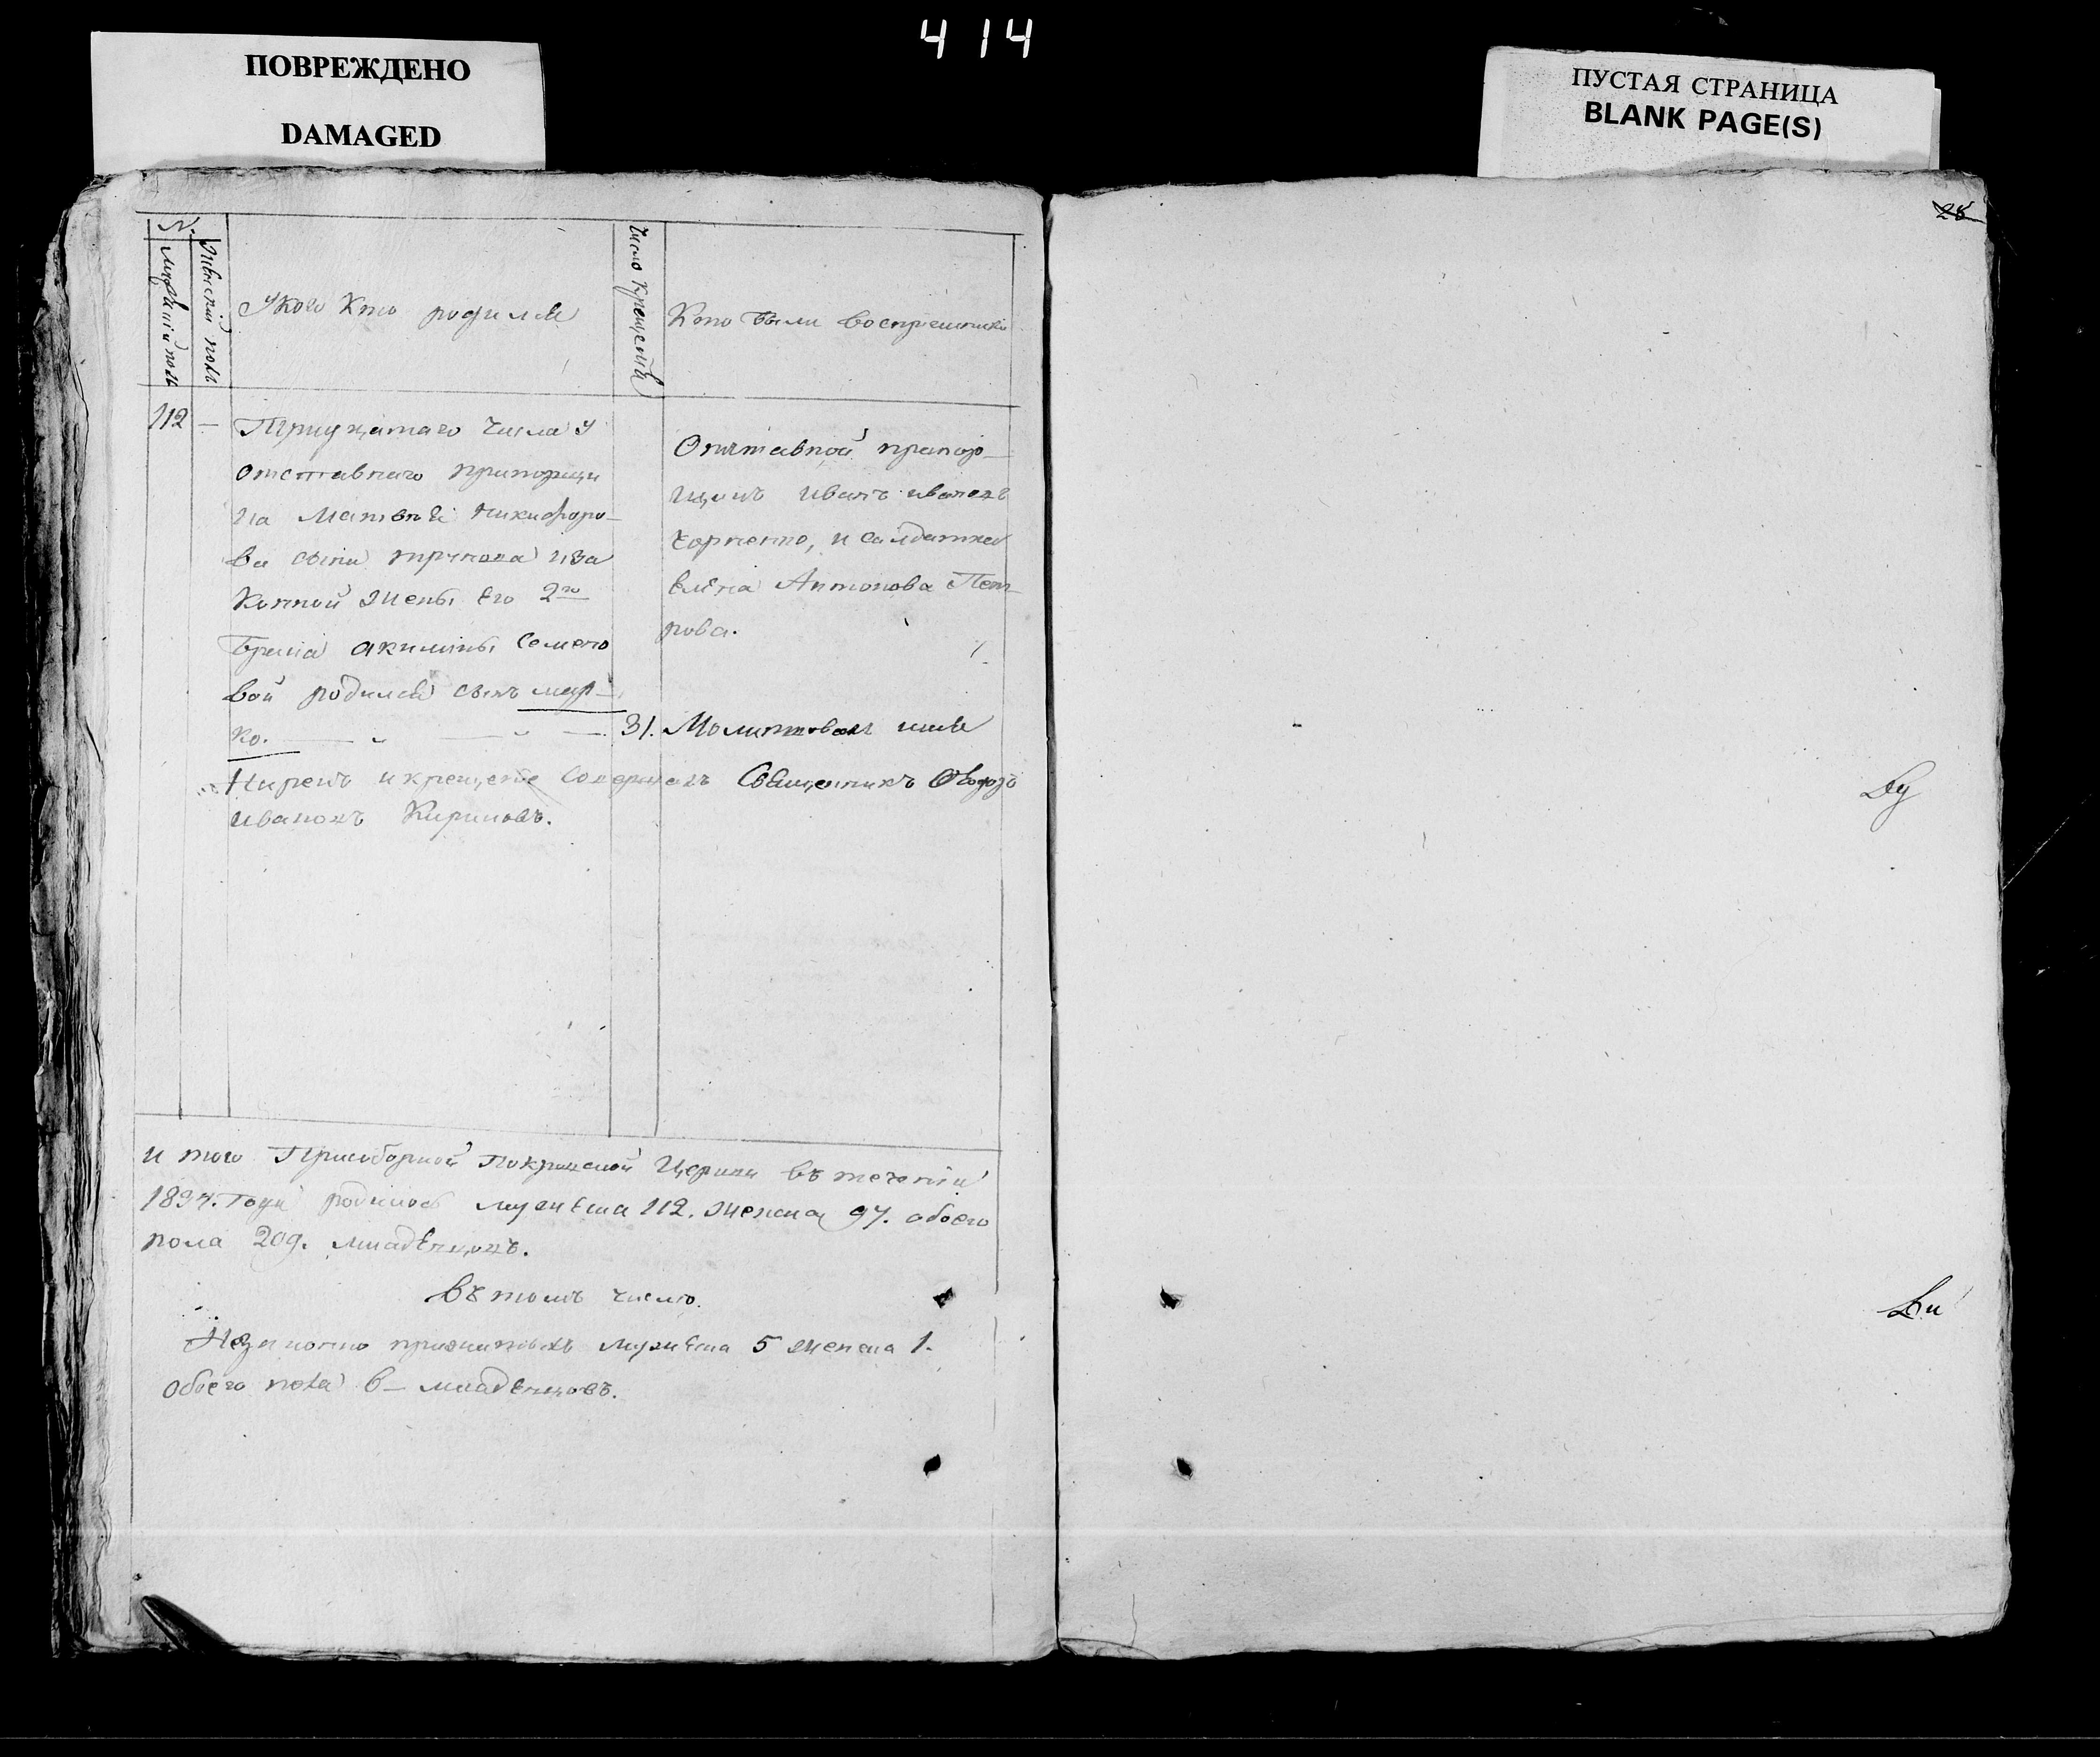 414
ПОВРЕЖДЕНО
DAMAGED
ПУСТАЯ СТРАНИЦА
BLANK PAGE(S)
28
№
мужескій полъ
Женскій полъ
У кого Кто родился
Число Крещенія
Кто были восприемники
112 —
Тридцатаго Числа У
отставнаго прапорщи
ка Матвѣя никифоро-
ва сына иза
Конной жены Его 2го
брака акилины Семено
вой родился сынъ мар-
ко.
31.
Отставной прапор-
щикъ иванъ ивановъ
, и салдатка
Елена Антонова Пет-
рова.
Молитвовалъ имя
Нарекъ и крещение Совершалъ Священникъ Ѳеодоръ
ивановъ Кириловъ.
и того При соборной Покровской Церкви въ теченіи
1834. Года родилось мужеска 112. женска 97. обоего
пола 209. младенцовъ.
въ томъ числѣ.
Незаконно прижитыхъ мужеска 5 женска 1.
обоего пола 6 — младенцовъ.